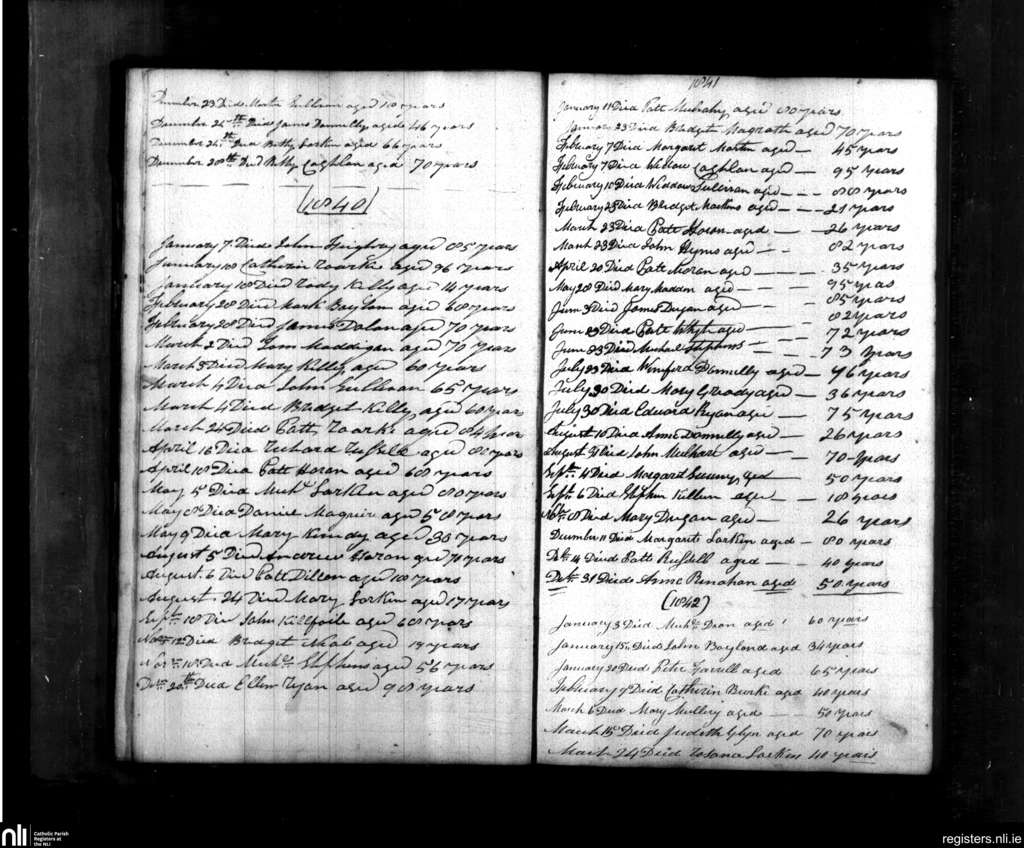 December 23 Died Martin Sullivan aged 18 years
December 25th Died James Donnelly aged 46 years
December 26th Died Betty Larkin aged 66 years
December 28th Died Betty Coghlan aged 70 years
(1840)
January 7 Died John aged 85 years
January 18 Catherin Roarke aged 96 years
January 18 Died Rody Killy aged 14 years
February 28 Died Mark Boylan aged 68 years
February 28 Died James Dolan aged 70 years
March 2 Died Tom Maddigan aged 70 years
March 3 Died Mary Killy aged 60 years
March 4 Died John Sullivan 65 years
March 4 Died Bridget Killy aged 60 years
March 24 Died Patt Roarke aged 84 year
April 16 Died Richard Russell aged 80 years
April 18 Died Patt Horan aged 68 years
May 5 Died Michl Larkin aged 80 years
May 8 Died Daniel Maguire aged 58 years
May 9 Died Mary aged 36 years
August 5 Died Andrew Horan aged 71 years
August 6 Died Patt Dillon aged years
August 24 Died Mary Larkin aged 17 years
Sept 18 Died John Killfoile aged 68 years
Novr 12 Died Bridget aged years
Novr Died Michl Stephens aged 56 years
Decr 20th Died Ellen Ryan aged 98 years
1841
January 11 Died Patt Mulvahy aged 80 years
January 23 Died Bridget Magrath aged 70 years
February 7 Died Margaret Martin aged — 45 years
February 7 Died Widow Coghlan aged — 95 years
February 10 Died Widdow Sullivan aged — 88 years
February 28 Died Bridget Martins aged — 21 years
March 23 Died Patt Horan aged — 26 years
March 23 Died John Hynes aged — 82 years
April 20 Died Patt Moran aged — 35 years
May 28 Died Mary Madden aged — 95 years
June 3 Died James Dugan aged — 85 years
82 years
June 23 Died Patt Whyh aged — 72 years
June 23 Died Michael Stephens — 73 years
July 23 Died Winiford Donnelly aged — 96 years
July 30 Died Mary Gready aged — 36 years
July 30 Died Edward Ryan aged — 75 years
August 10 Died Anne Donnelly aged — 26 years
August 31 Died John Mulhare aged — 70 years
Sept 4 Died Margaret aged 50 years
Sept 6 Died Stephen Cullen aged — 18 years
Novr 8 Died Mary Dugan aged — 26 years
December 11 Died Margaret Larkin aged — 80 years
Decr 14 Died Patt Russell aged — 40 years
Decr 31 Died Anne Renahan aged 50 years
(1842)
January 3 Died Michl Dean aged 60 years
January 15th Died John Boyland aged 34 years
January 20 Died Peter Farrell aged 65 years
February 7 Died Catherin Burke aged 40 years
March 6 Died Mary Mullery aged — 50 years
March 15 Died Judith Glyn aged 70 years
March 24 Died Rosana Larkin 40 years
nli
Catholic Parish
Registers at
the NLI
registers.nli.ie